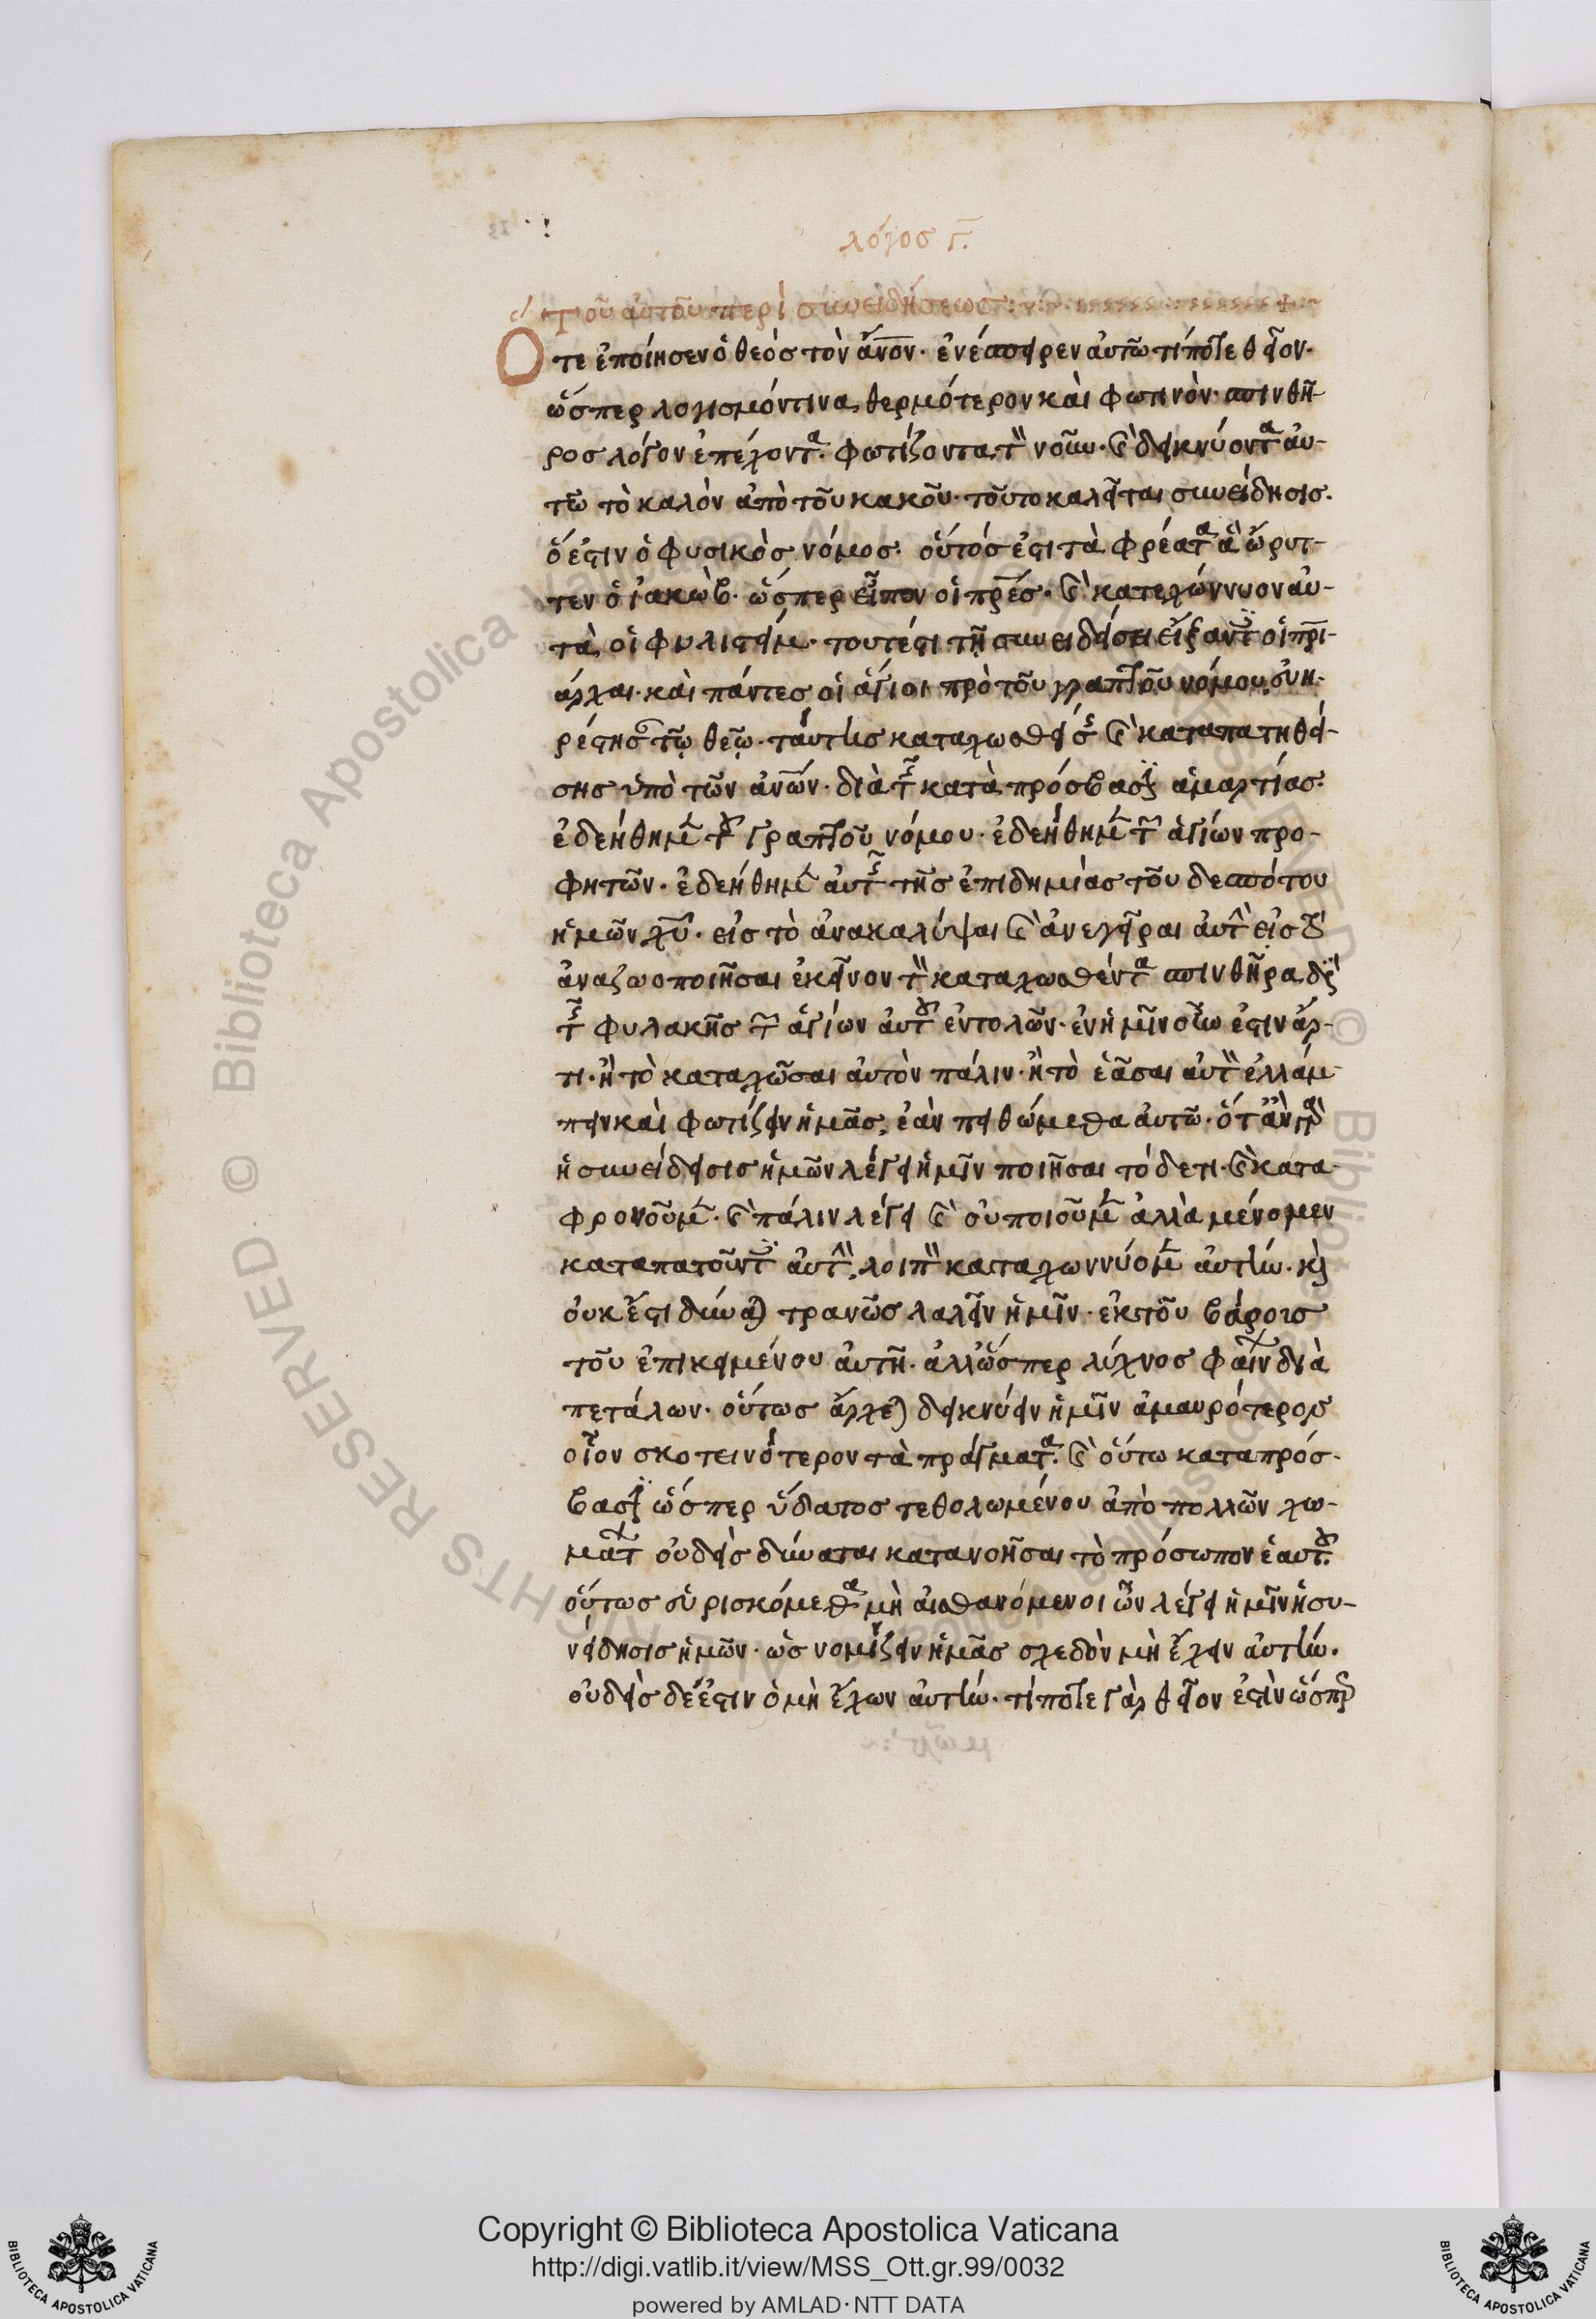 λόγος γ.
Τοῦ αὐτοῦ περὶ συνειδήσεως:
Ὅτε ἐποίησεν ὁ θεὸς τὸν ἄνον· ἐνέσπειρεν αὐτῶ τίποτε θεῖον·
ὥσπερ λογισμόν τινα θερμότερον καὶ φωτινὸν· σπινθῆ-
ρος λόγον ἐπέχοντα· φωτίζοντα τὸν νοῦν· καὶ δεικνύοντα αὐ-
τῶ τὸ καλὸν ἀπὸ τοῦ κακοῦ· τοῦτο καλεῖται συνείδησις·
ὅ ἐστιν ὁ φυσικὸς νόμος· οὗτός ἐστι τὰ φρέατα ἃ ὤρυτ-
τεν ὁ ἰακὼβ· ὥσπερ εἶπον οἱ πρες· καὶ κατεχώννυον αὐ-
τὰ οἱ φυλιστιείμ· τουτέστι τῆ συνειδήσει εἴξαντες οἱ πρι-
άρχαι· καὶ πάντες οἱ ἅγιοι πρὸ τοῦ γραπτοῦ νόμου, εὐη-
ρέστησαν τῷ θεῷ· ταύτης καταχωσθείσης καὶ καταπατηθεί-
σης ὑπὸ τῶν ἀνῶν· διὰ τῆς κατὰ πρόσβασιν ἁμαρτίας·
ἐδεήθημεν τοῦ γραπτοῦ νόμου· ἐδεήθημεν τῶν ἁγίων προ-
φητῶν· ἐδεήθημεν αὐτῆς τῆς ἐπιδημίας τοῦ δεσπότου
ἡμῶν χυ· εἰς τὸ ἀνακαλύψαι καὶ ἀνεγεῖραι αὐτὴν εἰς τὸ
ἀναζωοποιῆσαι ἐκεῖνον τὸν καταχωσθέντα σπινθῆρα διὰ
τῆς φυλακῆς τῶν ἁγίων αὐτοῦ ἐντολῶν· ἐν ἡμῖν οὖν ἐστιν ἄρ-
τι· ἢ τὸ καταχῶσαι αὐτὸν πάλιν· ἢ τὸ ἐᾶσαι αὐτὸν ἐλλάμ-
πειν καὶ φωτίζειν ἡμᾶς, ἐὰν πειθώμεθα αὐτῶ· ὅταν γὰρ
ἡ συνείδησις ἡμῶν λέγει ἡμῖν ποιῆσαι τόδε τι· καὶ κατα-
φρονοῦμεν· καὶ πάλιν λέγει καὶ οὐ ποιοῦμεν ἀλλὰ μένομεν
καταπατοῦντες αὐτὴν, λοιπὸν καταχωννύομεν αὐτὴν· καὶ
οὐκ ἔστι δύναται τρανῶς λαλεῖν ἡμῖν· ἐκ τοῦ βάρους
τοῦ ἐπικειμένου αὐτῆ· ἀλλ' ὥσπερ λύχνος φαίνων διὰ
πετάλων· οὕτως ἄρχεται δεικνύειν ἡμῖν ἀμαυρότερον
οἷον σκοτεινότερον τὰ πράγματα· καὶ οὕτω κατὰ πρόσ-
βασιν ὥσπερ ὕδατος τεθολωμένου ἀπὸ πολλῶν χω-
μάτων οὐδεὶς δύναται κατανοῆσαι τὸ πρόσωπον ἑαυτοῦ·
οὕτως εὑρισκόμεθα μὴ αἰσθανόμενοι ὧν λέγει ἡμῖν ἡ συ-
νείδησις ἡμῶν· ὡς νομίζειν ἡμᾶς σχεδὸν μὴ ἔχειν αὐτὴν·
οὐδεὶς δέ ἐστιν ὁ μὴ ἔχων αὐτὴν· τίποτε γὰρ θεῖον ἐστὶν ὥσπερ
Copyright © Biblioteca Apostolica Vaticana
http://digi.vatlib.it/view/MSS_Ott.gr.99/0032
powered by AMLAD·NTT DATA